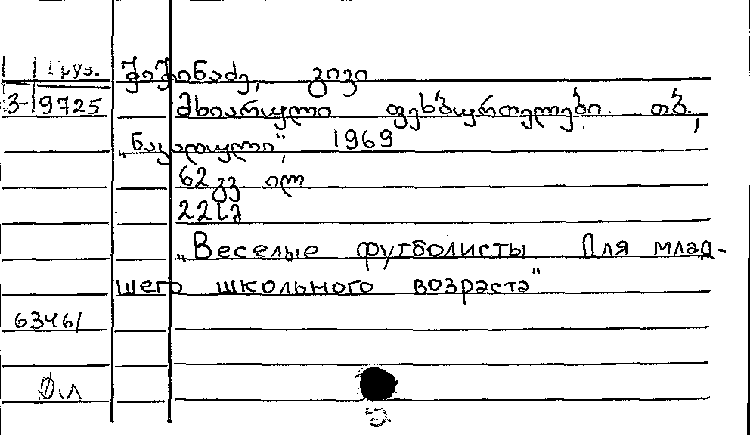 Груз. შუშინაძე, გივი
3-19725 მხიარული ფეხბურთელები. თბ.,
„ნაკადული“, 1969
62 გვ ილ
22სმ
„Веселые футболисты Для млад-
шего школьного возраста“
63461